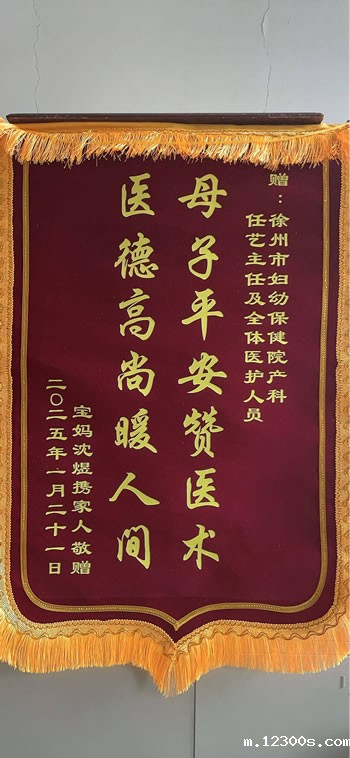 赠：徐州市妇幼保健院产科
任艺主任及全体医护人员
母子平安赞医术
医德高尚暖人间
宝妈沈煜携家人敬赠
二〇二五年一月二十一日
m.12300s.com